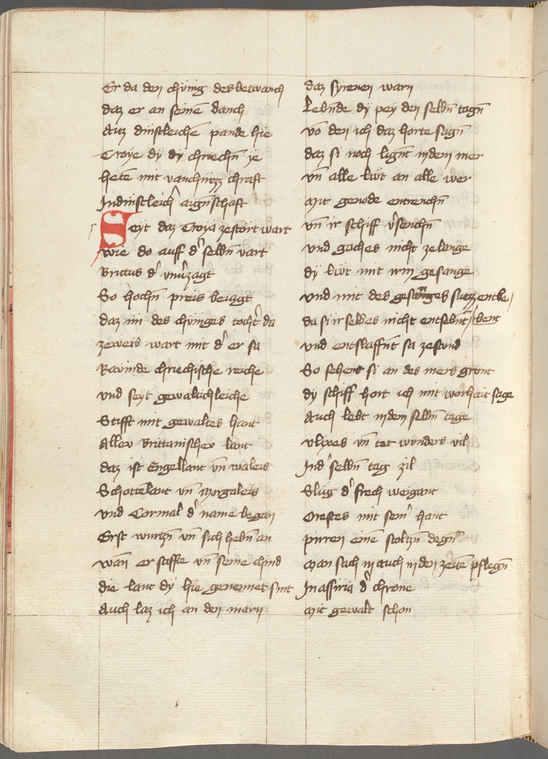 Er da den chünig des betwanch
daz er an seinē danch
Auz dinstleiche pande hie
Troye dy dy chriechn̄ ye
hetē mit manchuezz chraft
In dinstleich̄ aign̄schaft
Seyt daz Troya zestört wart
wie do auff d' selbn̄ vart
Brutus d' vnu'zagt
So hochn̄ preis beiagt
daz im des chüniges tocht' da
zeweis wart mit d' er sa
Rawmde chriechische reiche
vnd seyt gewaltichleiche
Stifft mit gewaltes hant
Allew Brittanischew lant
daz ist Engellant vn̄ waleis
Schottelant vn̄ Norgaleis
vnd Cornual d' name began
Erst wurtzn̄ vn̄ sich hebn̄ an
wan er stiffte vn̄ seine chind
die lant dy hie genennet sint
Auch laz ich an den mern
daz syrenen warn
Lebnde dy pey den selbn̄ tagn̄
vō den ich daz horte sagn̄
daz si noch lign̄t in dem mer
vn̄ alle läwt an alle wer
Mit genode ertrenchn̄
vn̄ ir schiff v'senchn̄
vnd gaches nicht ze lange
dy läwt mit irm gesange
vnd mit des gesanges suezz entbe/
da si ir selbes nicht entsebn̄t /bent
vnd entslaffn̄t sa zestund
So sehent si an des mers grunt
dy schiff hort ich mit worhait sage
Auch lebt in den selbn̄ tage
vlixes vn̄ tet wonders vil
In d' selbn̄ tag zil
Slüg d' frech weigant
Orestes mit sein' hant
pirren eine stoltzn̄ degn̄
Man sach in auch in den zeitē pflegn̄
In assiria d' chrone
Mit gewalt schon